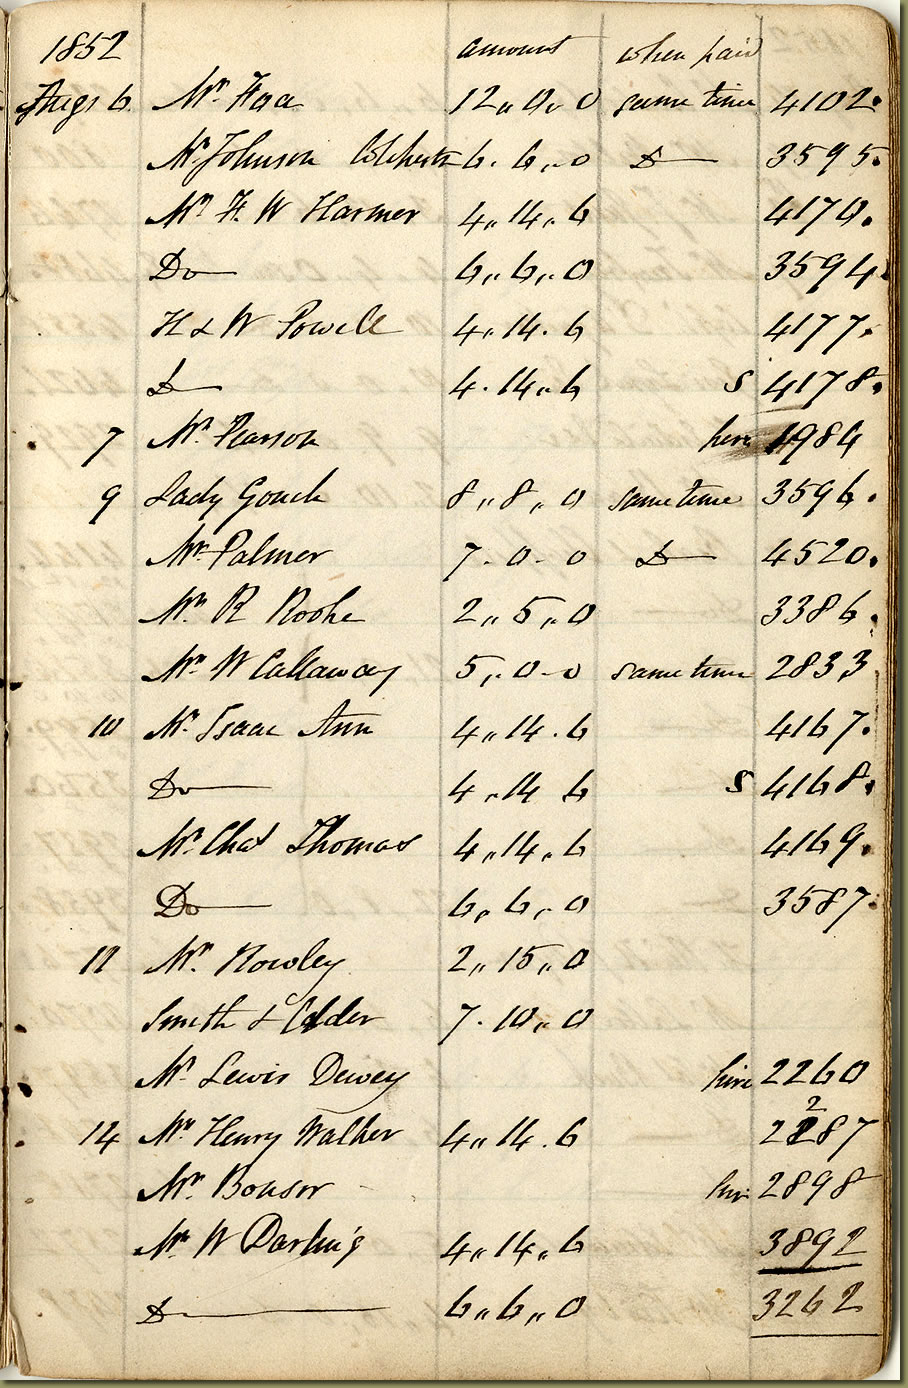 1852 amount when paid
Augs 6 Mr Haa 12,,0,,0 same time 4102.
Mr Johnson 6.6,,0 D 3595.
Mr H W Harmer 4,,14,,6 4170.
Do 6,,6,,0 3594.
H & W Powell 4,,14.6 4177.
D 4.14,,6 S 4178.
7 Mr Pearson here 4984
9 Lady Gouch 8,,8,,0 same time 3596.
Mr Palmer 7-0-0 D 4520.
Mr R Rooke 2,,5,,0 3386.
Mr W Callaway 5,,0-0 same time 2833
10 Mr Isaac Ann 4,,14.6 4167.
Do 4,,14 6 S 4168.
Mr Chas Thomas 4,,14,,6 4169.
Do 6,,6,,0 3587.
12 Mr Rowley 2,,15,,0
Smith & Elder 7.10,,0
Mr Lewis Dewey hire 2260
14 Mr Henry Walker 4,,14.6 2287
Mr Bonsor hire 2898
Mr W Darling 4,,14,,6 3892
D 6,,6,,0 3262